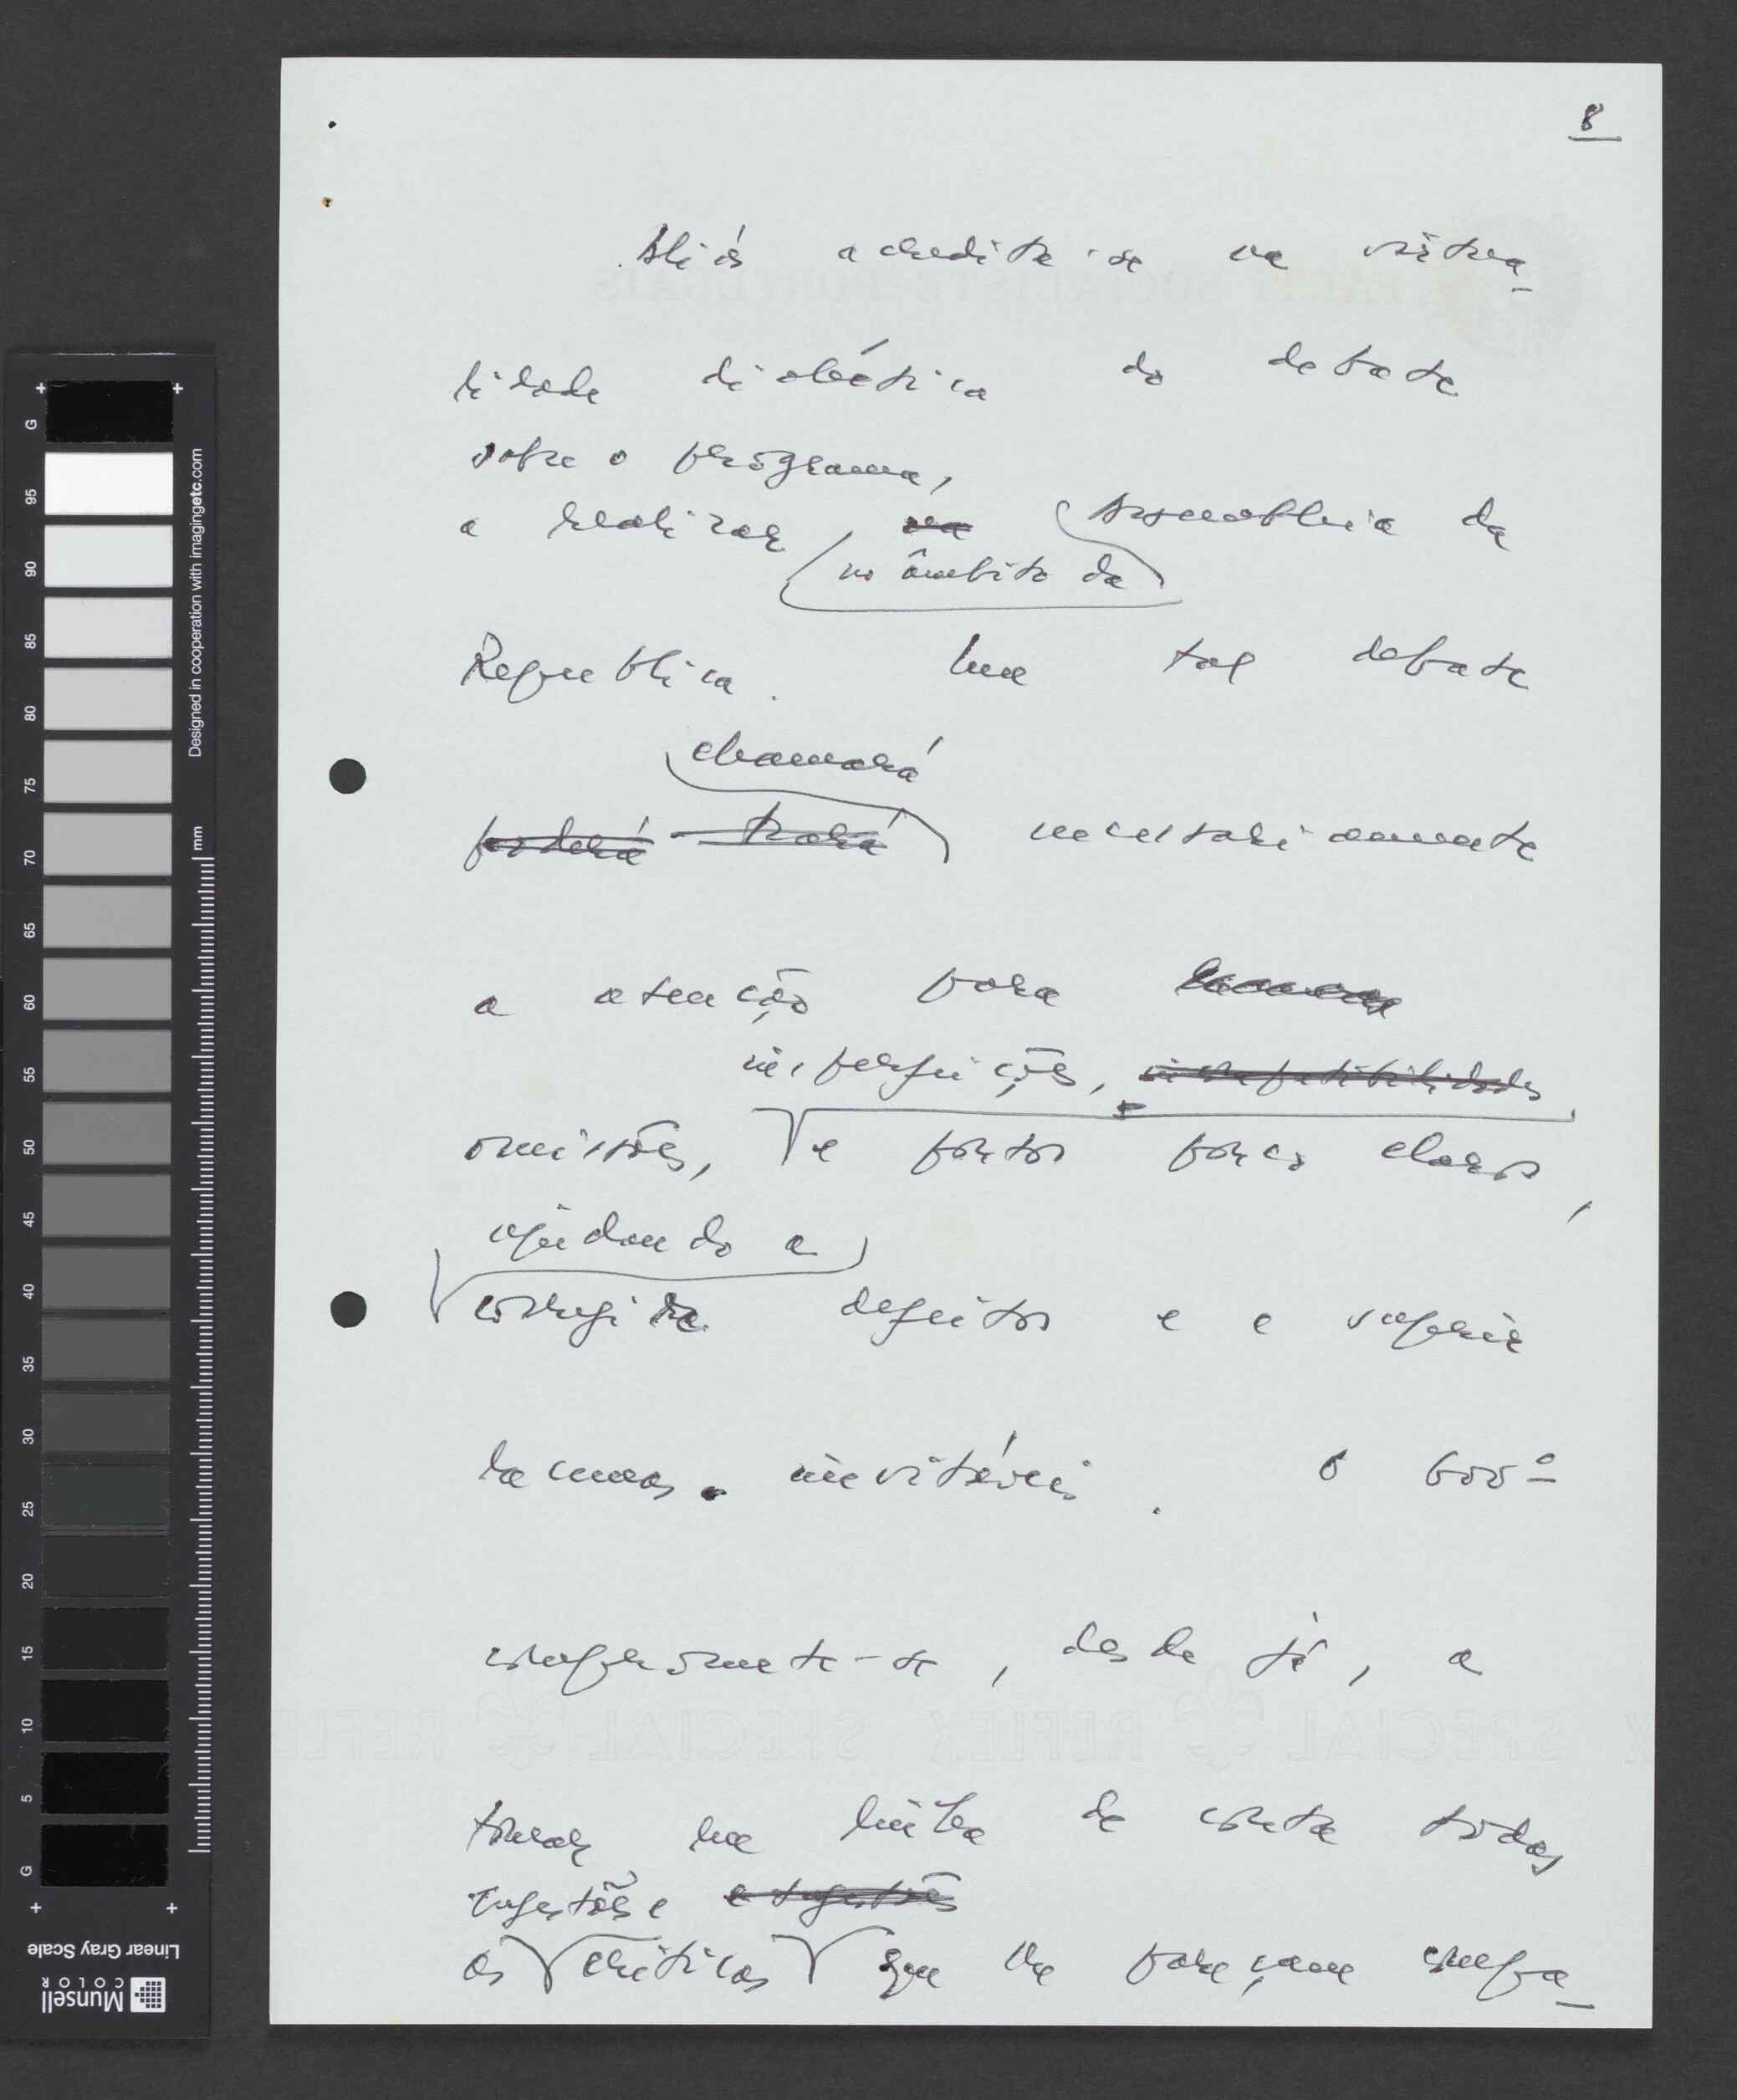 8
Aliás acredita-se na virtua
lidade dialéctica do debate
sobre o programa,
a realizar na Assembleia da
no âmbito da
República. Um tal debate
chamará
poderá trará necessariamente
a atenção para
imperfeições, incompatibilidades
omissões, e pontos pouco claros,
ajudando a
corrigir defeitos e a suprir
lacunas inevitáveis. O Govº
compromete-se, desde já, a
tomar em linha de conta todas
sugestões e e sugestões
as críticas que lhe pareçam compa
PARTI SOCIALISTE PORTUGAIS
SPECIAL REFLEX SPECIAL REFLEX
Designed in cooperation with imagingetc.com
mm
G 95 90 85 80 75 70 65 60 55 50 45 40 35 30 25 20 15 10 5 G
Linear Gray Scale
Munsell
COLOR